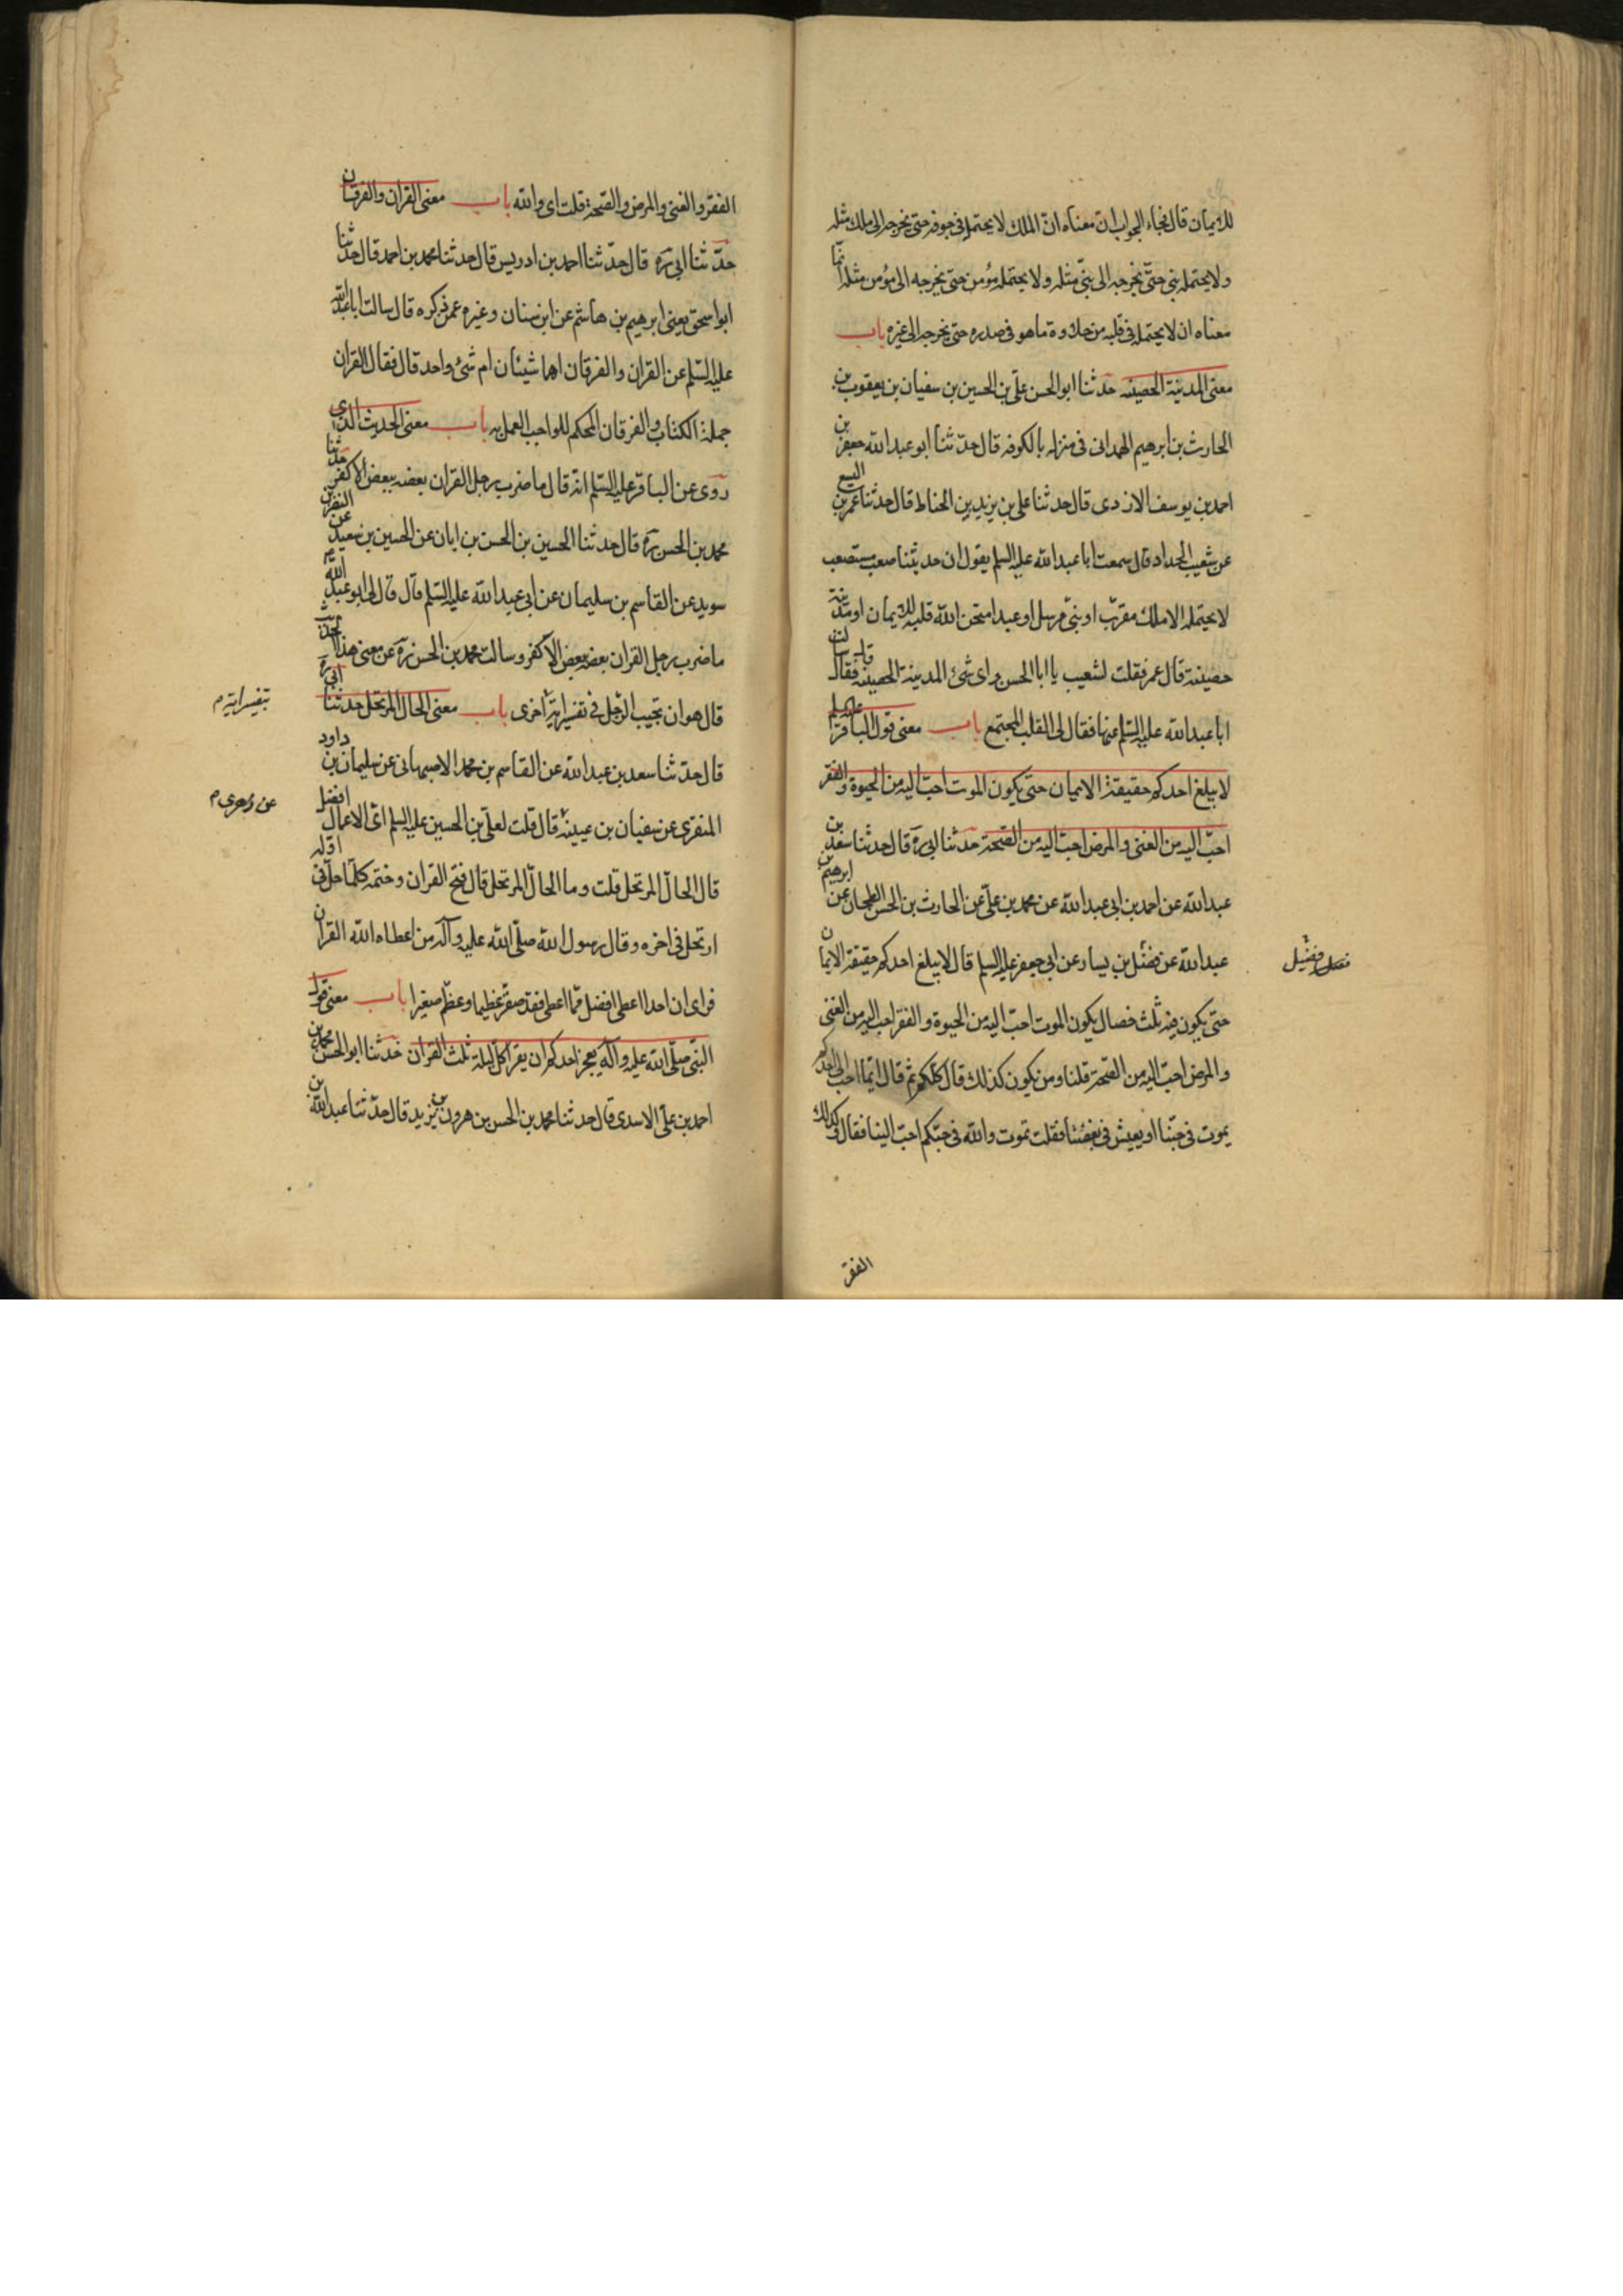 للايمان قال فجاء الجواب ان معناه انّ الملك لا يحتمله في جوفه حتى يخرجه الى ملك مثله
ولا يحتمله نبي حتّى يخرجه الى نبيّ مثله ولا يحتمله مؤمن حتى يخرجه الى مؤمن مثله انّما
معناه ان لا يحتمله في قلبه من حلاوة ما هو في صدره حتى يخرجه الى غيره باب
معنى المدينة الحصينه حدثنا ابو الحسن علي بن الحسين بن سفيان بن يعقوب بن
الحارث بن ابرهيم الهمداني في منزله بالكوفه قال حدّثنا ابو عبد الله جعفر بن
احمد بن يوسف الازدي قال حدثنا علي بن يزيد بن الحناط قال حدثنا عمر بن اليسع
عن شعيب الحداد قال سمعت ابا عبد الله عليه السلم يقول ان حديثنا صعب مستصعب
لا يحتمله الا ملك مقرّب او نبيّ مرسل او عبد امتحن الله قلبه للايمان او مدينة
حصينة قال عمر فقلت لشعيب يا ابا الحسن واى شئ المدينة الحصينه فقال قال سالت
ابا عبد الله عليه السّلم عنها فقال لى القلب المجتمع باب معنى قول الباقر عليه السلم
لا يبلغ احدكم حقيقة الايمان حتى يكون الموت احبّ اليه من الحيوة والفقر
احبّ اليه من الغنى والمرض احبّ اليه من الصّحة حدثنا ابى ره قال حدثنا سعد بن
عبد الله عن احمد بن ابى عبد الله عن محمد بن علّى عن الحارث بن الحسن الطحان عن ابرهيم بن
عبد الله عن فضيل بن يسار عن ابى جعفر عليه السلم قال لا يبلغ احدكم حقيقة الايمان
فضيل
حتى يكون فيه ثلث خصال يكون الموت احبّ اليه من الحيوة والفقر احب اليه من الغنى
والمرض احبّ اليه من الصّحة قلنا ومن يكون كذلك قال كلكم ثم قال ايّما احبّ الى احدكم
يموت في حبّنا او يعيش في بغضنا فقلت نموت والله في حبّكم احبّ الينا فقال وكذلك
الفقر
الفقر والغنى والمرض والصّحة قلت اى والله باب معنى القران والفرقان
حدّثنا ابى ره قال حدّثنا احمد بن ادريس قال حدثنا محمد بن احمد قال حدّثنا
ابو اسحق يعنى ابرهيم بن هاشم عن ابن سنان وغيره عمن ذكره قال سالت ابا عبد الله
عليه السّلم عن القران والفرقان اهما شيئان ام شئ واحد قال فقال القران
جملة الكتاب والفرقان المحكم للواجب العمل به باب معنى الحديث الذى
روى عن الباقر عليه السّلم انّه قال ما ضرب رجل القران بعضه ببعض الا كفر حدّثنا
محمد بن الحسن ره قال حدثنا الحسين بن الحسن بن ابان عن الحسين بن سعيد عن النضر بن
سويد عن القاسم بن سليمان عن ابى عبد الله عليه السّلم قال قال لى ابو عبد الله
ما ضرب رجل القران بعضه ببعض الا كفر وسالت محمد بن الحسن ره عن معنى هذا الحديث
قال هو ان تجيب الرّجل في تفسير اية اخرى باب معنى الحال المرتحل حدثنا ابى ره
بتفسير اية م
قال حدّثنا سعد بن عبد الله عن القاسم بن محمد الاصبهانى عن سليمان بن داود
المنقرى عن سفيان بن عيينة قال قلت لعلى بن الحسين عليه السلم اىّ الاعمال افضل
عن زهرى م
قال الحالّ المرتحل قلت وما الحالّ المرتحل قال فتح القران وختمه كلّما حلّ في اوّله
ارتحل في اخره وقال رسول الله صلّى الله عليه وآله من اعطاه الله القران
فراى ان احدا اعطى افضل ممّا اعطى فقد صغّر عظيما وعظّم صغيرا باب معنى قول
النبّى صلّى الله عليه وآله يعجز احدكم ان يقرا كلّ ليلة ثلث القران حدثنا ابو الحسن محمد بن
احمد بن علّى الاسدى قال حدثنا محمد بن الحسن بن هرون بن يزيد قال حدّثنا عبد الله بن